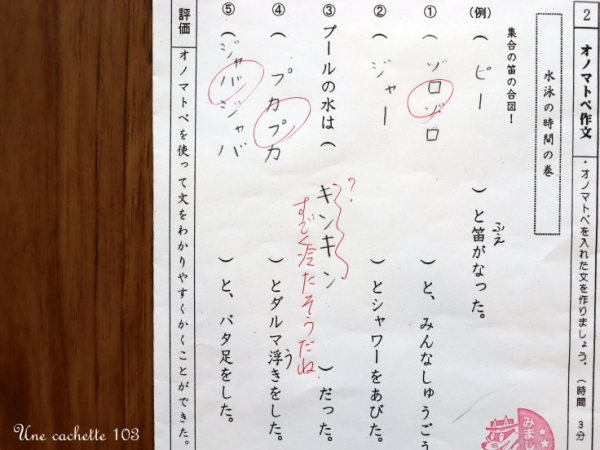 2 オノマトペ作文 ・オノマトペを入れた文を作りましょう。 (時間 3分
水泳の時間の巻
集合の笛の合図!
(例) ( ピー ) と笛がなった。
ふえ
① ( ゾロゾロ ) と、みんなしゅうごう
② ( ジャー ) とシャワーをあびた。
③ プールの水は ( キンキン ) だった。
?
すごく冷たそうだね
④ ( プカプカ ) とダルマ浮きをした。
う
⑤ ( ジャバジャバ ) と、バタ足をした。
評価 オノマトペを使って文をわかりやすくかくことができた。
みまし
Une cachette 103